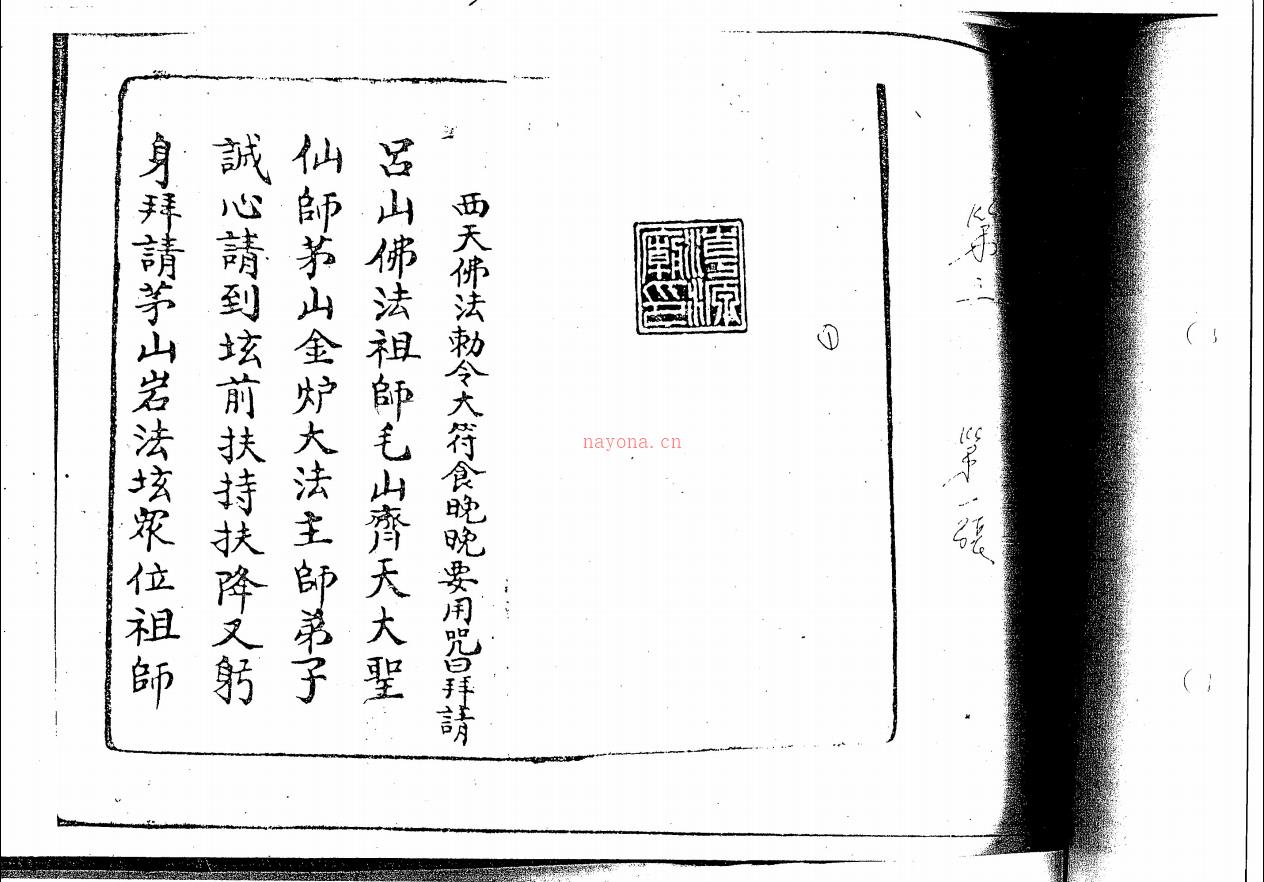 第三
第一張
①
清源廟印
西天佛法勅令大符食晚晚要用咒曰拜請
呂山佛法祖師毛山齊天大聖
仙師茅山金炉大法主師弟子
誠心請到坛前扶持扶降又躬
身拜請茅山岩法坛眾位祖師
nayona.cn